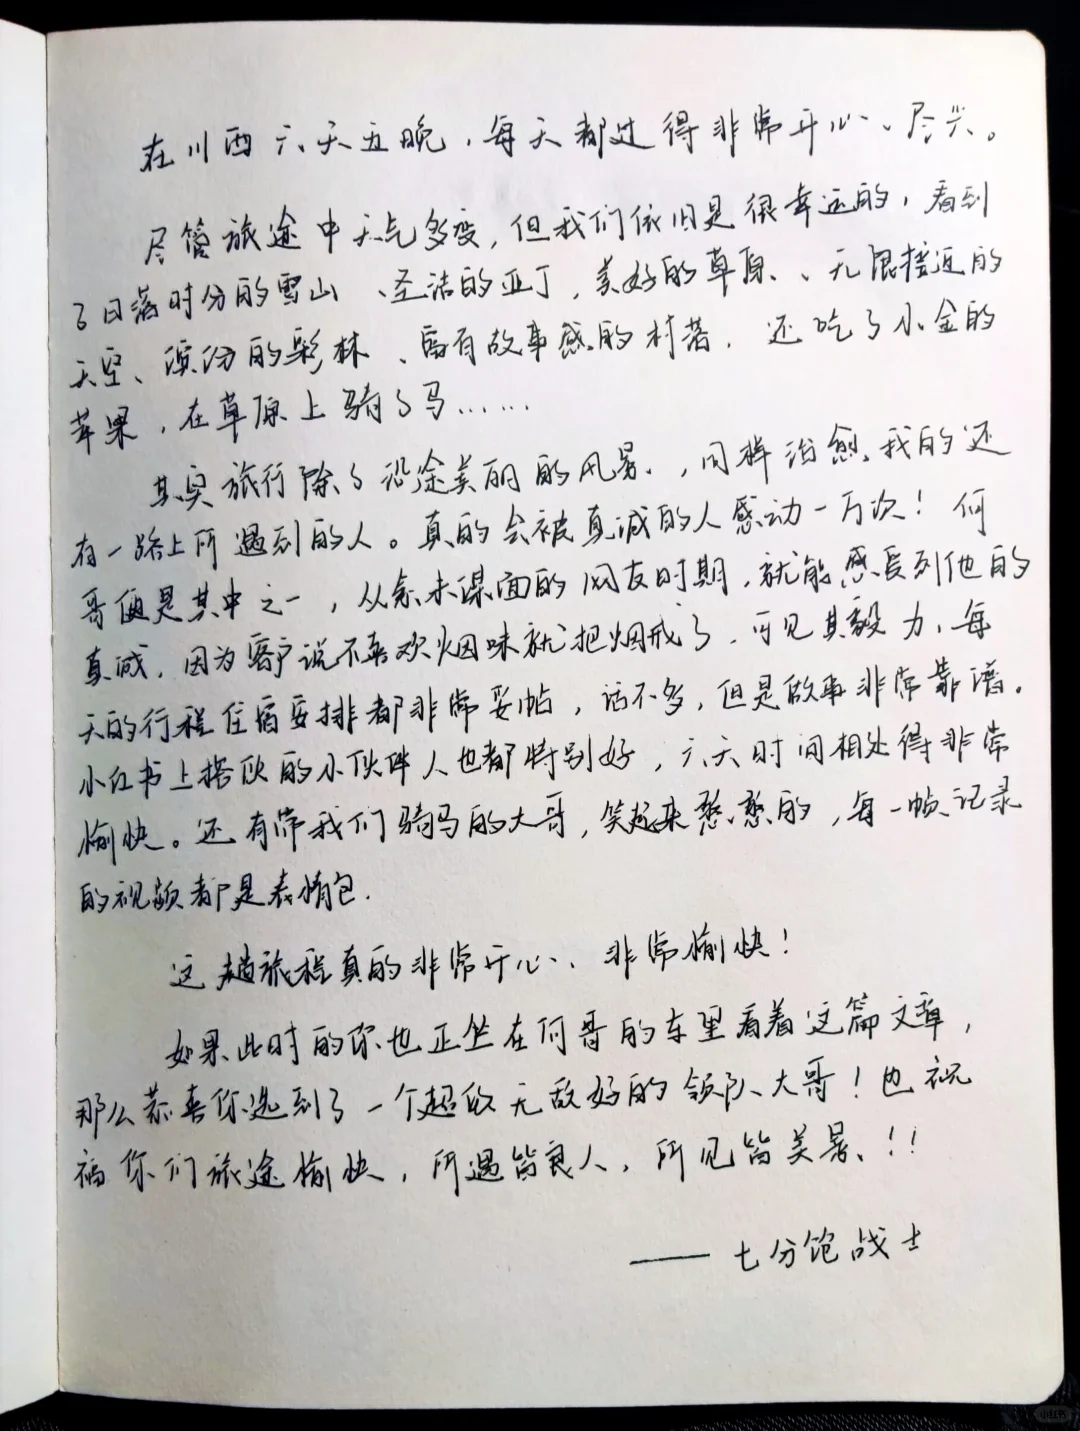 在川西六天五晚，每天都过得非常开心、尽兴。
尽管旅途中天气多变，但我们依旧是很幸运的，看到
了日落时分的雪山、圣洁的亚丁，美好的草原、无限接近的
天空、缤纷的彩林、富有故事感的村落，还吃了小金的
苹果，在草原上骑了马……
其实旅行除了沿途美丽的风景，同样治愈我的还
有一路上所遇到的人。真的会被真诚的人感动一万次！何
哥便是其中之一，从素未谋面的网友时期，就能感受到他的
真诚，因为客户说不喜欢烟味就把烟戒了，可见其毅力，每
天的行程住宿安排都非常妥帖，话不多，但是做事非常靠谱。
小红书上搭伙的小伙伴人也都特别好，六天时间相处得非常
愉快。还有带我们骑马的大哥，笑起来憨憨的，每一帧记录
的视频都是表情包.
这趟旅程真的非常开心、非常愉快！
如果此时的你也正坐在何哥的车里看着这篇文章，
那么恭喜你选到了一个超级无敌好的领队大哥！也祝
福你们旅途愉快，所遇皆良人，所见皆美景！！
——七分饱战士
小红书